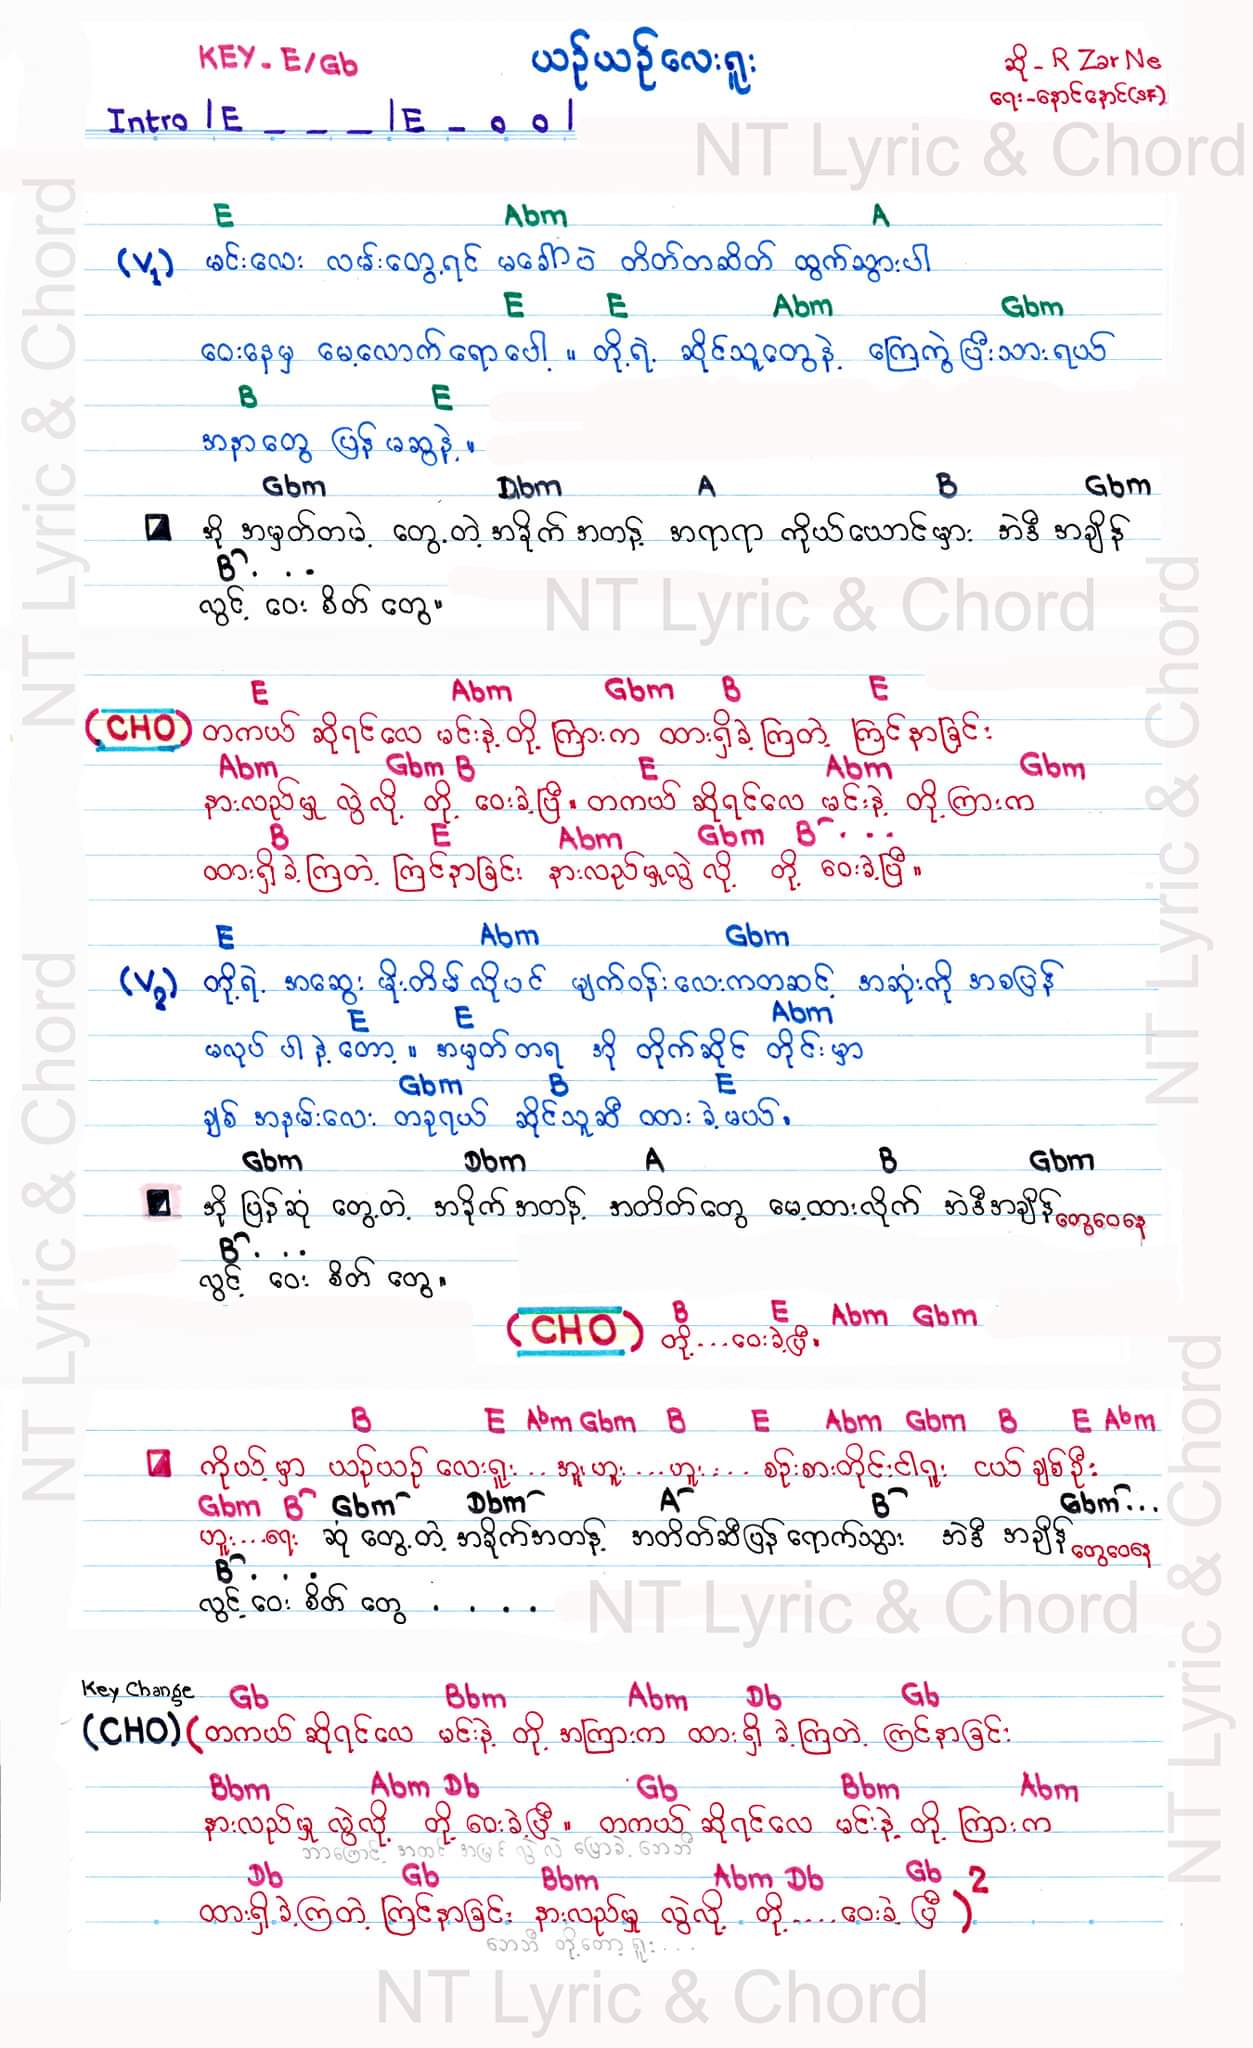 KEY - E/Gb
ယဉ်ယဉ်လေးရူး
ဆို - R Zar Ne
ရေး - နောင်နောင်(SF)
Intro |E _ _ _ |E - o o |
NT Lyric & Chord
E Abm A
(V1) မင်းလေး လမ်းတွေ့ရင် မခေါ်ပဲ တိတ်တဆိတ် ထွက်သွားပါ
E E Abm Gbm
ဝေးနေမှ မေ့လောက်ရောပေါ့ ။ တို့ရဲ့ ဆိုင်သူတွေနဲ့ ကြေကွဲပြီးသားရယ်
B E
အနာတွေ ပြန်မဆွနဲ့ ။
Gbm Dbm A B Gbm
အို အမှတ်တမဲ့ တွေ့တဲ့အခိုက်အတန့် အရာရာ ကိုယ်ယောင်မှား အဲဒီ အချိန်
B . . .
လွင့် ဝေး စိတ် တွေ။
NT Lyric & Chord
E Abm Gbm B E
(CHO) တကယ် ဆိုရင်လေ မင်းနဲ့ တို့ ကြားက ထားရှိခဲ့ကြတဲ့ ကြင်နာခြင်း
Abm Gbm B E Abm Gbm
နားလည်မှု လွဲလို့ တို့ ဝေးခဲ့ပြီ ။ တကယ် ဆိုရင်လေ မင်းနဲ့ တို့ကြားက
B E Abm Gbm B . . .
ထားရှိခဲ့ကြတဲ့ ကြင်နာခြင်း နားလည်မှုလွဲလို့ တို့ ဝေးခဲ့ပြီ ။
E Abm Gbm
(V2) တို့ရဲ့ အဆွေး မိုးတိမ်လိုပင် မျက်ဝန်းလေးကတဆင့် အဆုံးကို အစပြန်
E E Abm
မလုပ် ပါ နဲ့ တော့ ။ အမှတ်တရ အို တိုက်ဆိုင် တိုင်းမှာ
Gbm B E
ချစ် အနမ်းလေး တခုရယ် ဆိုင်သူဆီ ထား ခဲ့မယ်။
Gbm Dbm A B Gbm
အို ပြန်ဆုံ တွေ့တဲ့ အခိုက်အတန့် အတိတ်တွေ မေ့ထားလိုက် အဲဒီအချိန်တွေဝေနေ
B . . .
လွင့် ဝေး စိတ် တွေ။
(CHO) B E Abm Gbm
တို့...ဝေးခဲ့ပြီ။
B E Abm Gbm B E Abm Gbm B E Abm
ကိုယ့်မှာ ယဉ်ယဉ် လေးရူး... အူးဟူး...ဟူး.... စဉ်းစားတိုင်းငါရူး ငယ်ချစ်ဦး
Gbm B Gbm Dbm A B Gbm...
ဟူး...ရေး ဆုံတွေ့တဲ့ အခိုက်အတန့် အတိတ်ဆီပြန်ရောက်သွား အဲဒီ အချိန်တွေဝေနေ
B . . .
လွင့် ဝေး စိတ် တွေ . . . .
NT Lyric & Chord
Key Change Gb Bbm Abm Db Gb
(CHO) (တကယ် ဆိုရင်လေ မင်းနဲ့ တို့ အကြားက ထားရှိ ခဲ့ကြတဲ့ ကြင်နာခြင်း
Bbm Abm Db Gb Bbm Abm
နားလည်မှု လွဲလို့ တို့ ဝေးခဲ့ပြီ ။ တကယ် ဆိုရင်လေ မင်းနဲ့ တို့ ကြားက
ဘာကြောင့် အထင် အမြင် လွဲ လဲ ပြောခဲ့ ဘေဘီ
Db Gb Bbm Abm Db Gb
ထားရှိခဲ့ကြတဲ့ ကြင်နာခြင်း နားလည်မှု လွဲလို့ တို့ .... ဝေးခဲ့ ပြီ )2
ဘေဘီ တို့တော့ ရူး....
NT Lyric & Chord
NT Lyric & Chord
NT Lyric & Chord
NT Lyric & Chord
NT Lyric & Chord